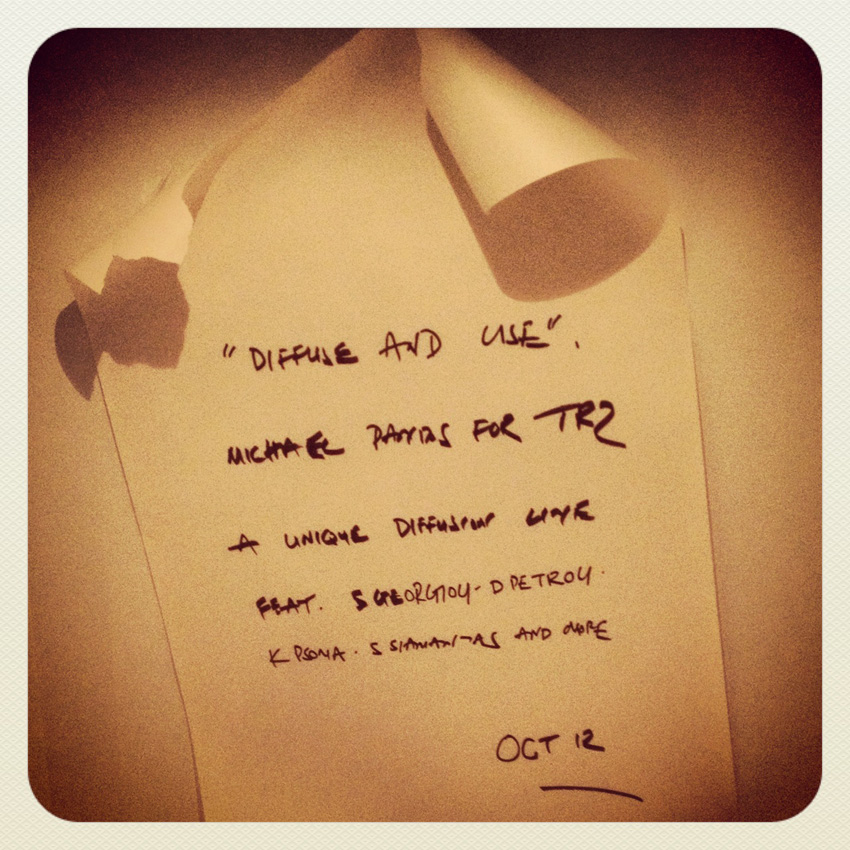 "DIFFUSE AND USE".
MICHAEL FOR TR2
A UNIQUE DIFFUSION LINE
FEAT. S GEORGIOU - D PETROU.
K PSOMA. S AND MORE
OCT 12